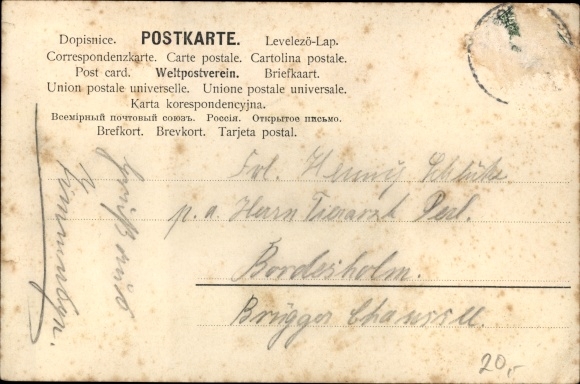 Dopisnice. POSTKARTE. Levelező-Lap.
Correspondenzkarte. Carte postale. Cartolina postale.
Post card. Weltpostverein. Briefkaart.
Union postale universelle. Unione postale universale.
Karta korespondencyjna.
Всемірный почтовый союзъ. Россія. Открытое письмо.
Brefkort. Brevkort. Tarjeta postal.
Frl. Henny
p. a. Herrn Tierarzt
Bordesholm.
Brügger Chaussee.
20,-